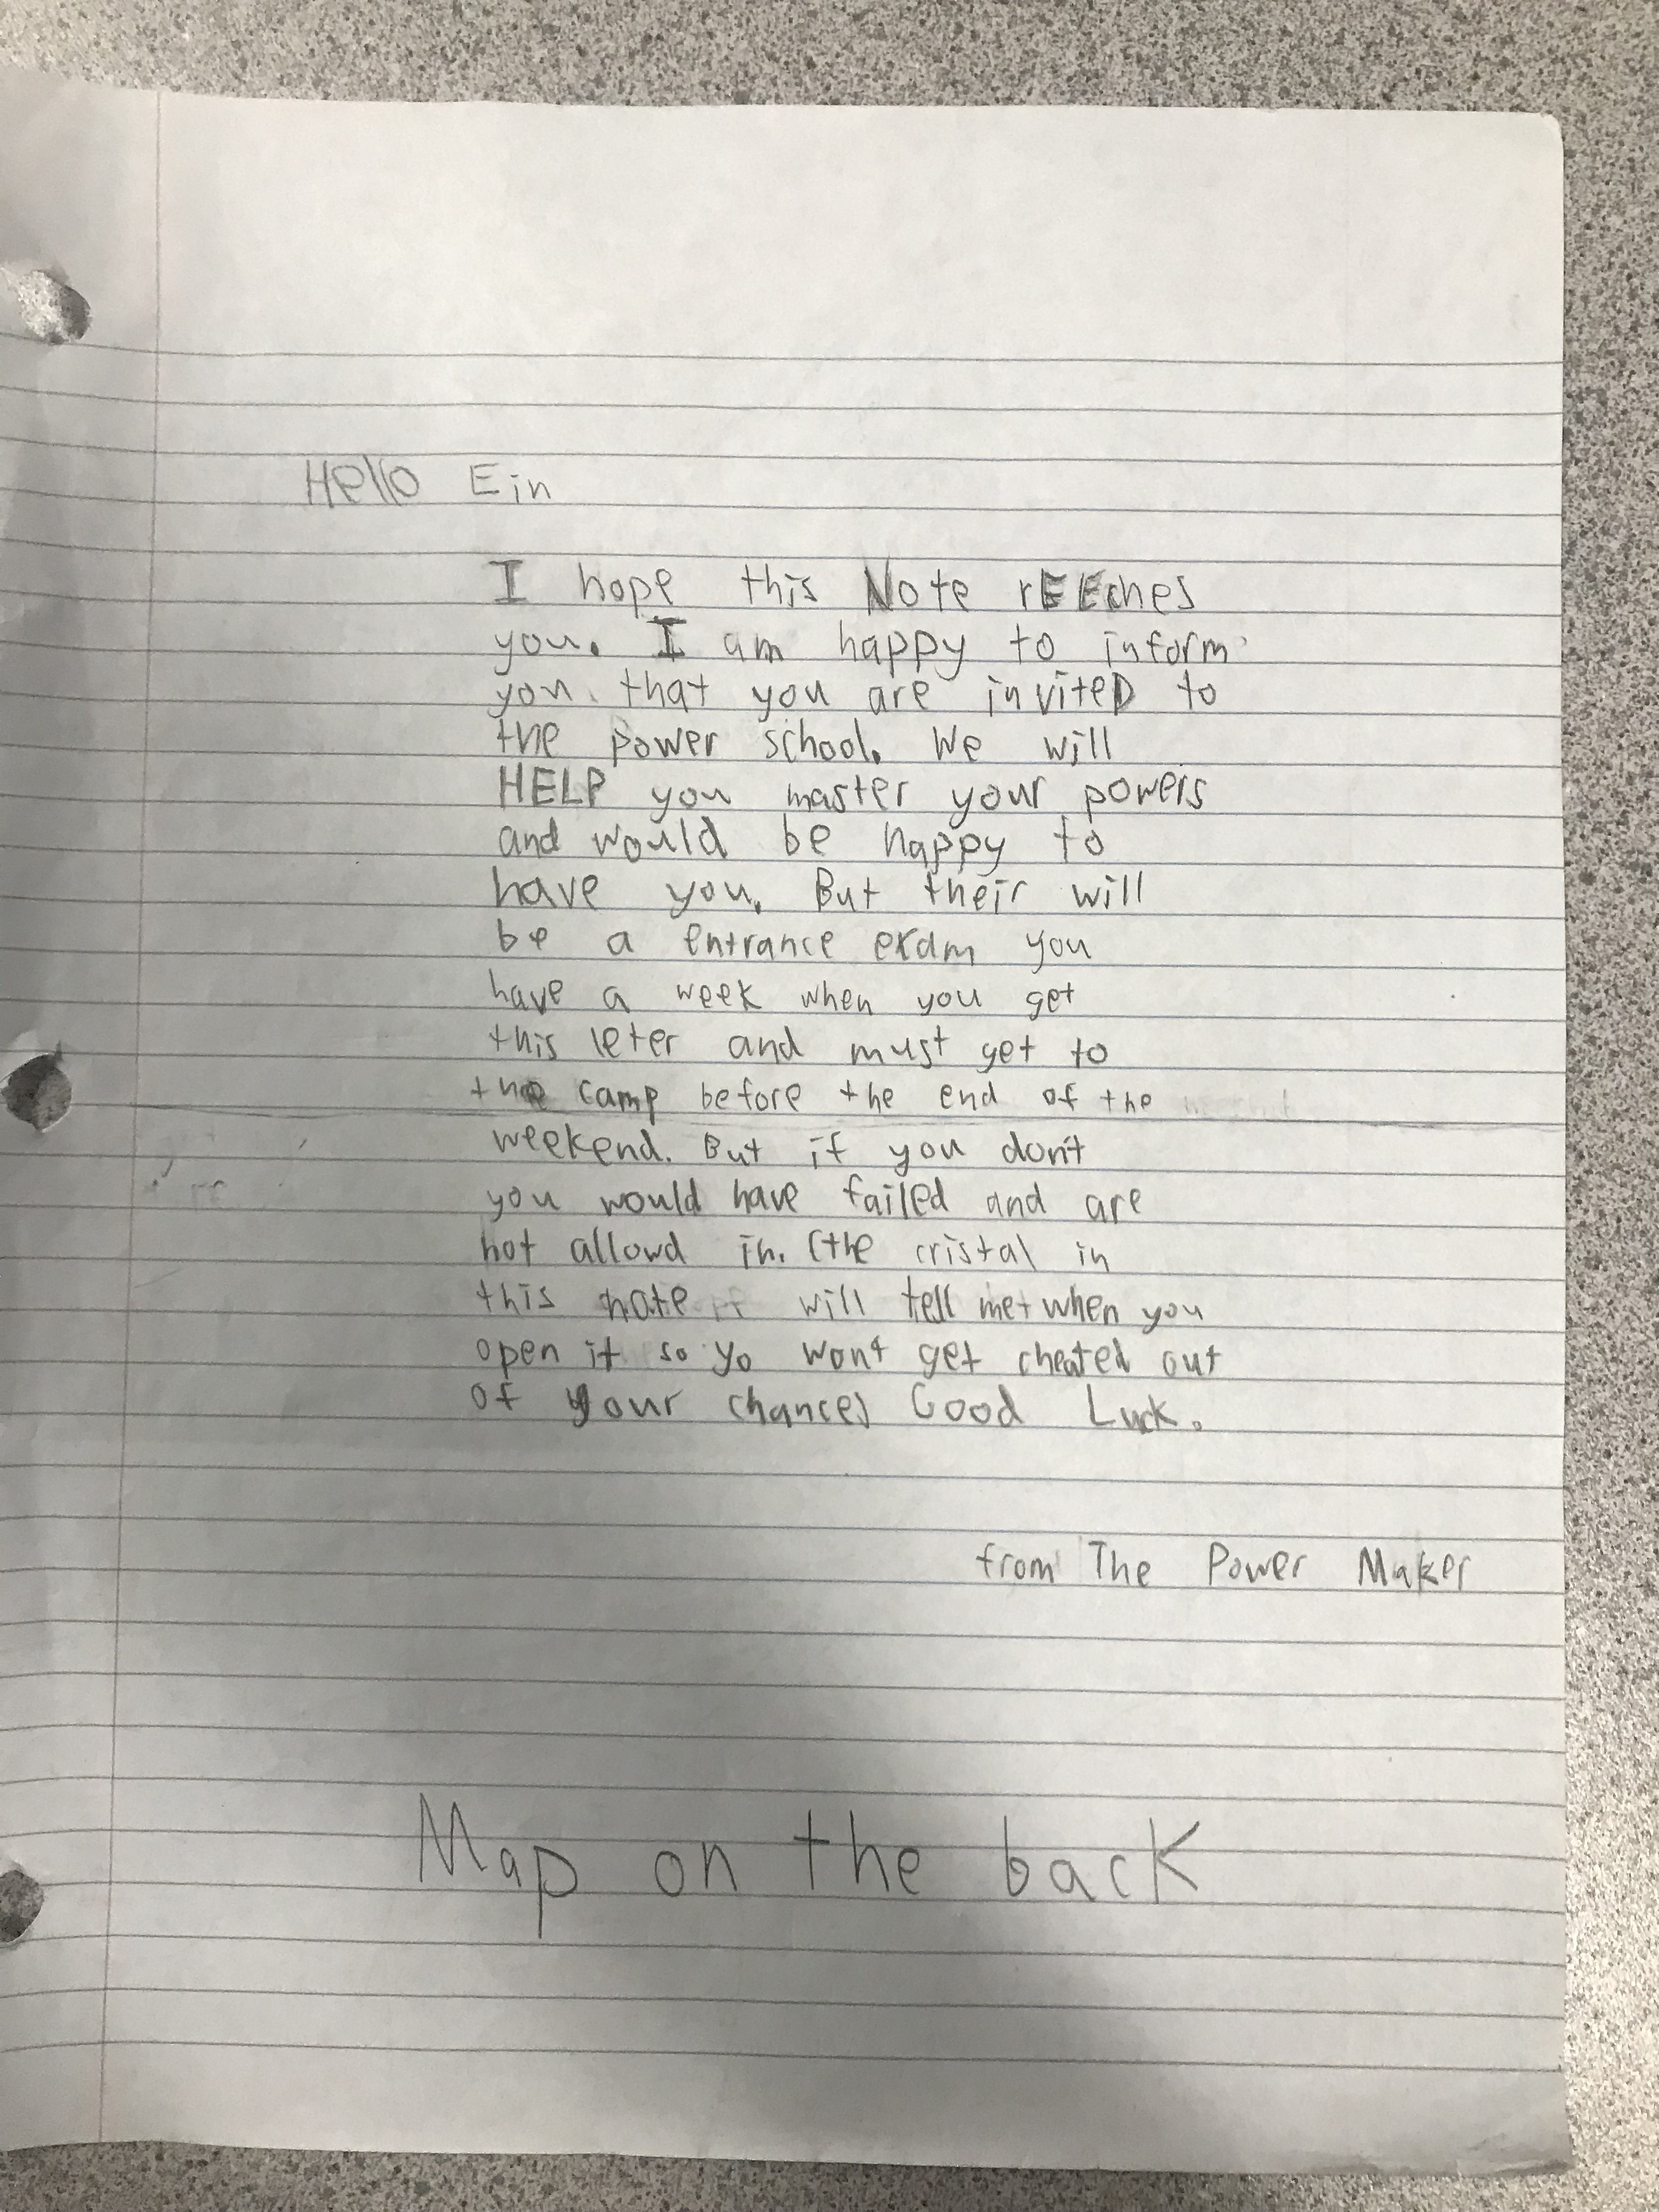 Hello Ein
I hope this Note rEEches
you. I am happy to inform
you that you are inviteD to
the power school. We will
HELP you master your powers
and would be happy to
have you. But their will
be a entrance exam you
have a week when you get
this leter and must get to
the camp before the end of the
weekend. But if you don't
you would have failed and are
not allowd in. (the cristal in
this note will tell me when you
open it so yo wont get cheated out
of your chance) Good Luck.
from The Power Maker
Map on the back